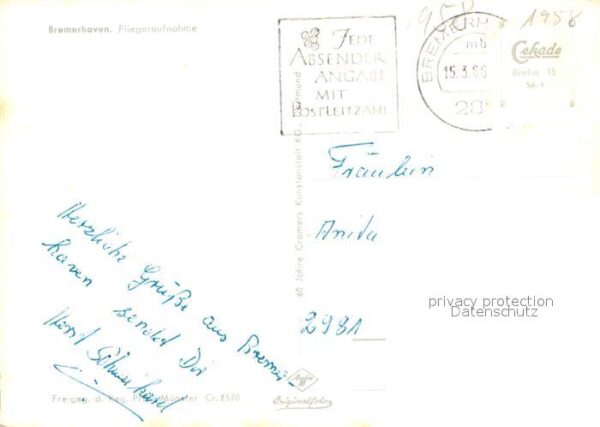 Bremerhaven. Fliegeraufnahme
1958
1958
JEDE
ABSENDER
ANGABE
MIT
POSTLEITZAHL
BREMERH
mb
15.3.66
28
Cekade
Breha 15
Sd-1
60 Jahre Cramers Kunstanstalt KG., Dortmund
Fräulein
Anita
2981
privacy protection
Datenschutz
Herzliche Grüße aus Bremer-
haven sendet Dir
Horst
Agfa
Originalfoto
Freigeg. d. Reg. Präs. Münster Cr. 2570